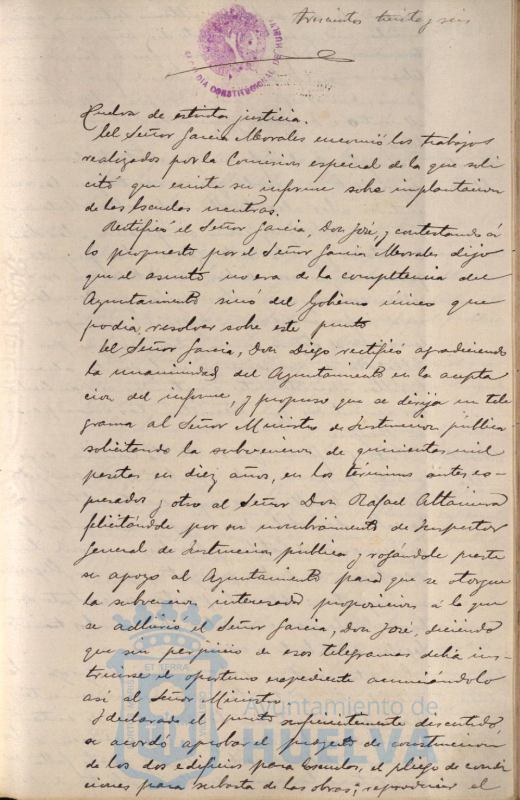 trescientos treinta y seis
ALCALDIA CONSTITUCIONAL DE HUELVA
Huelva de estricta justicia.
El Señor Garcia Morales encomió los trabajos
realizados por la Comision especial de la que soli
citó que emita su informe sobre implantacion
de las Escuelas neutras.
Rectificó el Señor Garcia, Don José, y contestando á
lo propuesto por el Señor Garcia Morales dijo
que el asunto no era de la competencia del
Ayuntamiento sinó del Gobierno único que
podia resolver sobre este punto
El Señor Garcia, Don Diego rectificó agradeciendo
la unanimidad del Ayuntamiento en la acepta
cion del informe, y propuso que se dirija un tele
grama al Señor Ministro de Instruccion pública
solicitando la subvencion de quinientas mil
pesetas en diez años, en los términos antes ex-
presados y otro al Señor Don Rafael Altamira
felicitándole por su nombramiento de Inspector
General de Instruccion pública y rogándole preste
su apoyo al Ayuntamiento para que se otorgue
la subvencion interesada proposicion á la que
se adhirió el Señor Garcia, Don José, diciendo
que sin perjuicio de esos telegramas debia ins-
truirse el oportuno expediente anunciándolo
asi al Señor Ministro.
Y declarado el punto suficientemente discutido,
se acordó aprobar el proyecto de construccion
de los dos edificios para Escuelas, el pliego de condi
ciones para subasta de las obras; reproducir el
ET TERRA
Ayuntamiento de
HUELVA